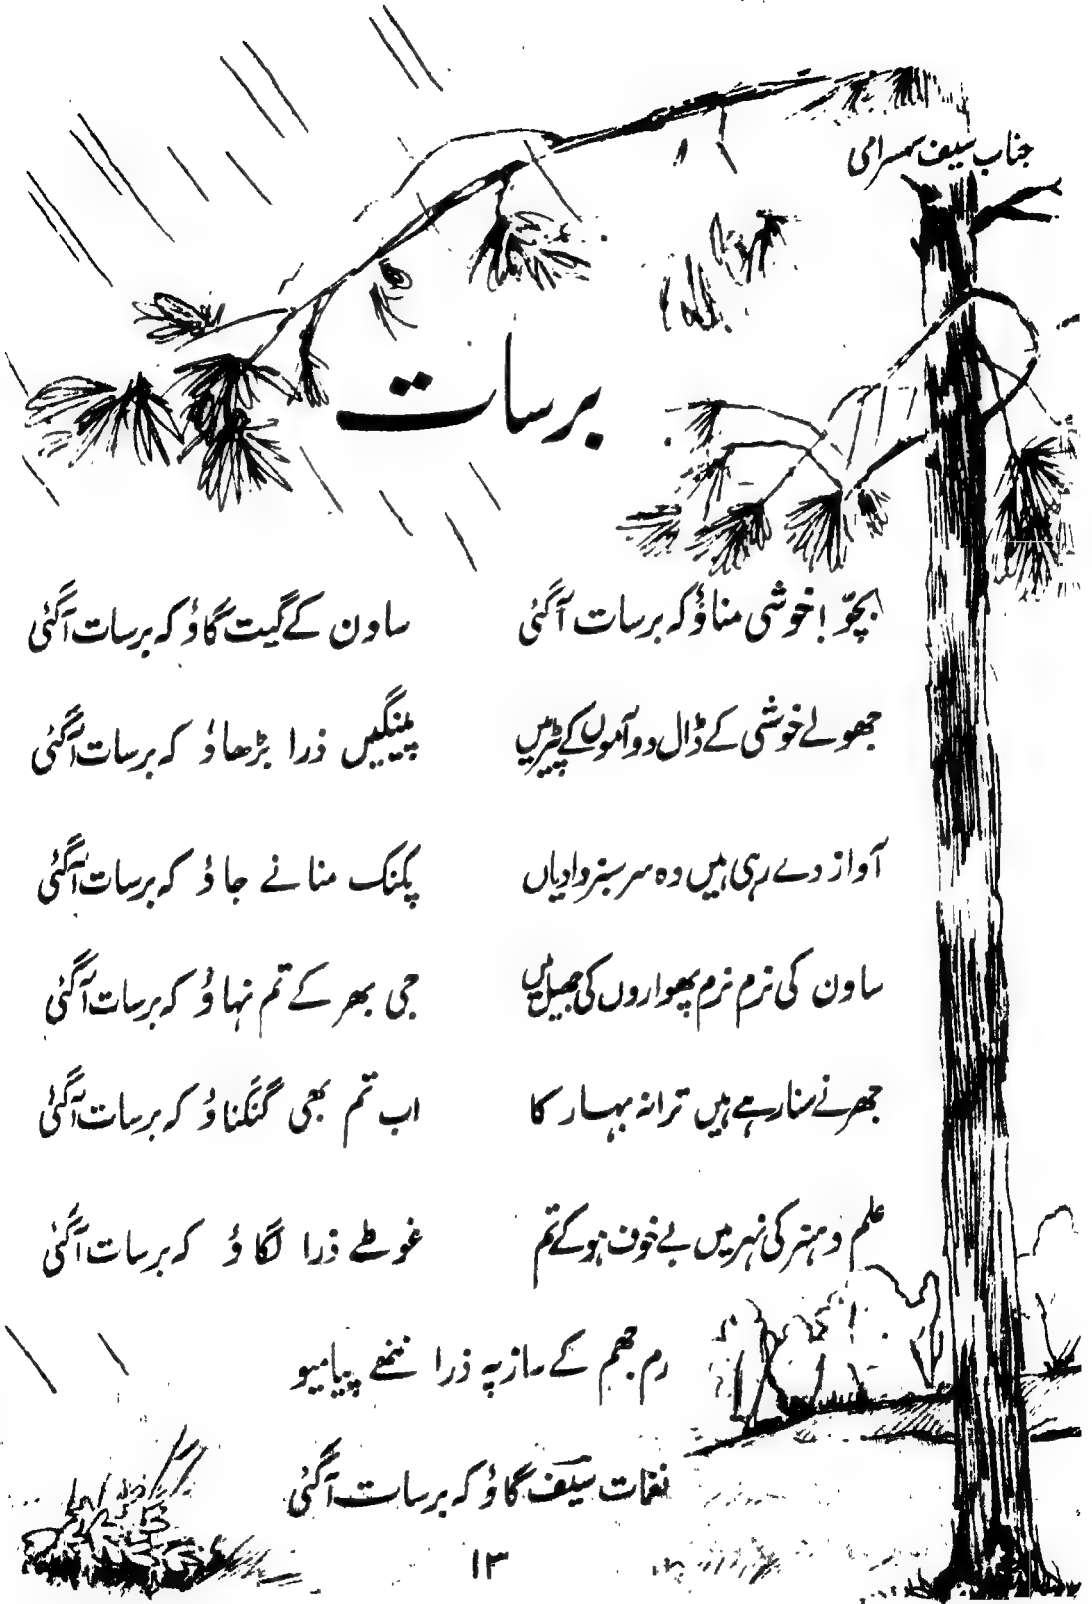 جناب سیف سہسرامی
برسات
بچّو! خوشی مناؤ کہ برسات آگئی
ساون کے گیت گاؤ کہ برسات آگئی
جھولے خوشی کے ڈال دو آموں کے پیڑ میں
پینگیں ذرا بڑھاؤ کہ برسات آگئی
آواز دے رہی ہیں وہ سرسبز وادیاں
پکنک منانے جاؤ کہ برسات آگئی
ساون کی نرم نرم پھواروں کی جھیل میں
جی بھر کے تم نہاؤ کہ برسات آگئی
جھرنے سنا رہے ہیں ترانہ بہار کا
اب تم بھی گنگناؤ کہ برسات آگئی
علم و ہنر کی نہر میں بے خوف ہوکے تم
غوطے ذرا لگاؤ کہ برسات آگئی
رم جھم کے ساز پہ ذرا ننھے پیامیو
نغمات سیفؔ گاؤ کہ برسات آگئی
۱۳